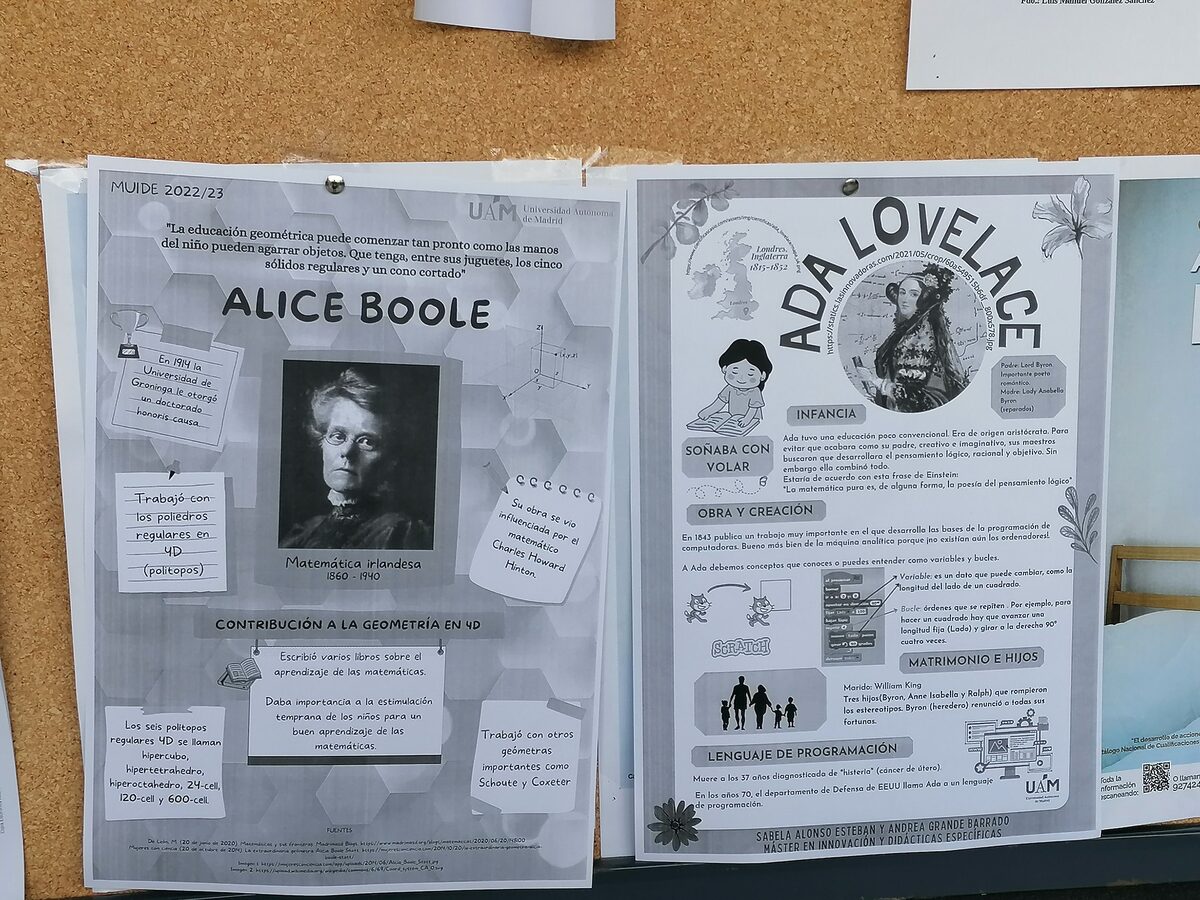 Fdo.: Luis Manuel González Sánchez
MUIDE 2022/23
UAM Universidad Autónoma
de Madrid
"La educación geométrica puede comenzar tan pronto como las manos
del niño pueden agarrar objetos. Que tenga, entre sus juguetes, los cinco
sólidos regulares y un cono cortado"
ALICE BOOLE
En 1914 la
Universidad de
Groninga le otorgó
un doctorado
honoris causa
Trabajó con
los poliedros
regulares en
4D
(politopos)
Z
(x,y,z)
O
Y
X
Matemática irlandesa
1860 - 1940
Su obra se vio
influenciada por el
matemático
Charles Howard
Hinton.
CONTRIBUCIÓN A LA GEOMETRÍA EN 4D
Escribió varios libros sobre el
aprendizaje de las matemáticas.
Daba importancia a la estimulación
temprana de los niños para un
buen aprendizaje de las
matemáticas.
Los seis politopos
regulares 4D se llaman
hipercubo,
hipertetraedro,
hiperoctaedro, 24-cell,
120-cell y 600-cell.
Trabajó con otros
geómetras
importantes como
Schoute y Coxeter
FUENTES
De León, M. (20 de junio de 2020). Matemáticas y sus fronteras. Madrimasd Blogs.
ADA LOVELACE
Londres,
Inglaterra
1815-1852
Londres
https://statics.lasinnovadoras.com/2021/05/crop/
Padre: Lord Byron.
Importante poeta
romántico.
Madre: Lady Anabella
Byron
(separados)
INFANCIA
SOÑABA CON
VOLAR
Ada tuvo una educación poco convencional. Era de origen aristócrata. Para
evitar que acabara como su padre, creativo e imaginativo, sus maestros
buscaron que desarrollara el pensamiento lógico, racional y objetivo. Sin
embargo ella combinó todo.
Estaría de acuerdo con esta frase de Einstein:
"La matemática pura es, de alguna forma, la poesía del pensamiento lógico"
OBRA Y CREACIÓN
En 1843 publica un trabajo muy importante en el que desarrolla las bases de la programación de
computadoras. Bueno más bien de la máquina analítica porque ¡no existían aún los ordenadores!.
A Ada debemos conceptos que conoces o puedes entender como variables y bucles.
Variable: es un dato que puede cambiar, como la
longitud del lado de un cuadrado.
Bucle: órdenes que se repiten . Por ejemplo, para
hacer un cuadrado hay que avanzar una
longitud fija (Lado) y girar a la derecha 90°
cuatro veces.
SCRATCH
MATRIMONIO E HIJOS
Marido: William King
Tres hijos(Byron, Anne Isabella y Ralph) que rompieron
los estereotipos. Byron (heredero) renunció a todas sus
fortunas.
LENGUAJE DE PROGRAMACIÓN
Muere a los 37 años diagnosticada de "histeria" (cáncer de útero).
En los años 70, el departamento de Defensa de EEUU llama Ada a un lenguaje
de programación.
UAM
Universidad Autónoma
de Madrid
SABELA ALONSO ESTEBAN Y ANDREA GRANDE BARRADO
MÁSTER EN INNOVACIÓN Y DIDÁCTICAS ESPECÍFICAS
"El desarrollo de accione
Nacional de Cualificaciones
Toda la
información
escaneando:
O llaman
927424